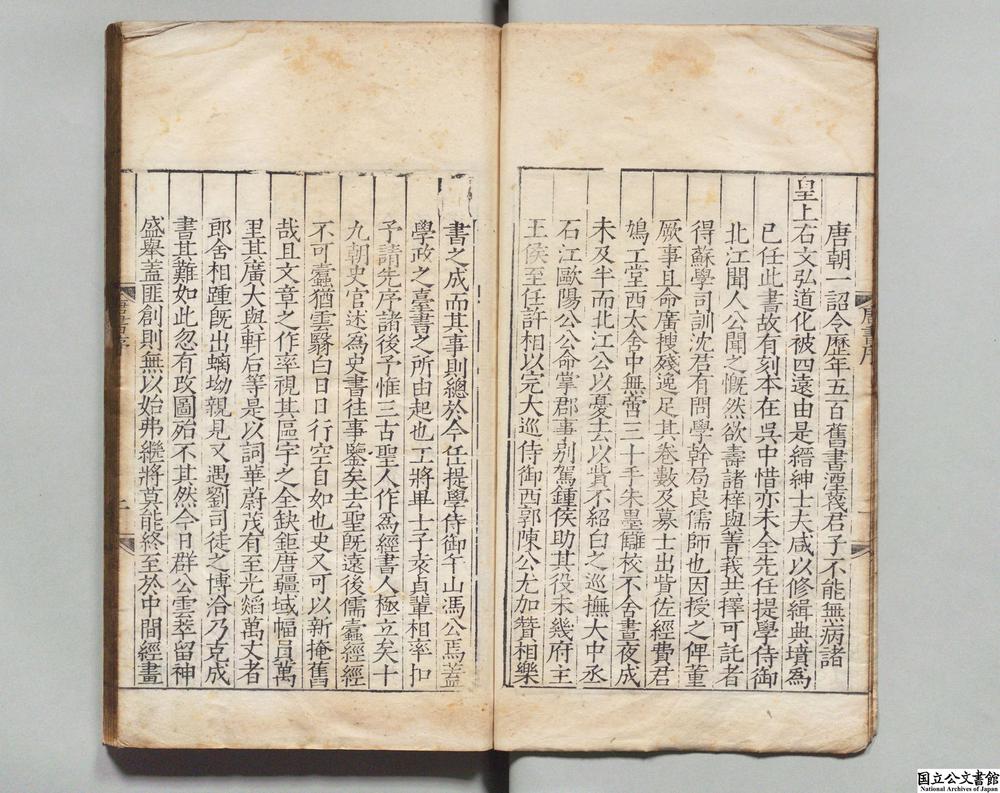 唐朝一詔令歷年五百舊書湮茂君子不能無病諸
皇上右文弘道化被四遠由是縉紳士夫咸以修緝典墳為
已任此書故有刻本在吳中惜亦未全先任提學侍御
北江聞人公聞之慨然欲壽諸梓與菁莪共擇可託者
得蘇學司訓沈君有問學幹局良儒師也因授之俾董
厥事且命廣搜殘逸足其卷數及募士出貲佐經費君
鳩工堂西太舍中無啻三十手朱墨讎校不舍晝夜成
未及半而北江公以憂去以貲不紹白之巡撫大中丞
石江歐陽公公命掌郡事別駕鍾侯助其役未幾府主
王侯至任許相以完大巡侍御西郭陳公尤加贊相樂
書之成而其事則總於今任提學侍御午山馮公焉蓋
學政之臺書之所由起也工將畢士子袁貞輩相率扣
予請先序諸後予惟三古聖人作為經書人極立矣十
九朝史官述為史書往事鑒矣去聖既遠後儒蠹經經
不可蠹猶雲翳日日行空自如也史又可以新掩舊
哉且文章之作率視其區宇之全缺鉅唐疆域幅員萬
里其廣大與軒后等是以詞華蔚茂有至光燄萬丈者
郎舍相踵既出螭坳親見又遇劉司徒之博洽乃克成
書其難如此忽有改圖殆不其然今日群公雲萃留神
盛舉蓋匪創則無以始弗繼將莫能終至於中間經畫
唐書序
唐書序
二
国立公文書館
National Archives of Japan